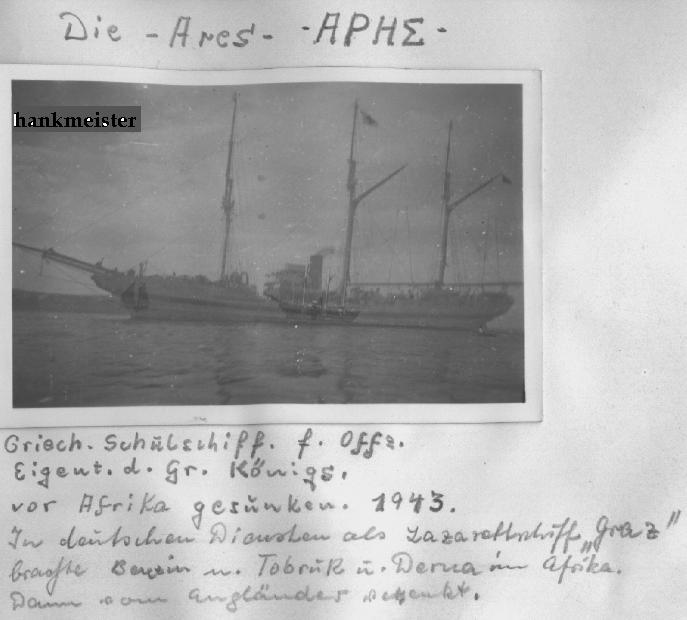 Die - Ares - - ΑΡΗΣ -
hankmeister
Griech. Schülschiff. f. Offz.
Eigent. d. Gr. Königs.
vor Afrika gesünken. 1943.
In deütschen Diensten als Lazarettschiff „Graz"
brachte Benzin n. Tobrük ü. Derna in Afrika.
Dann vom Engländer versenkt.